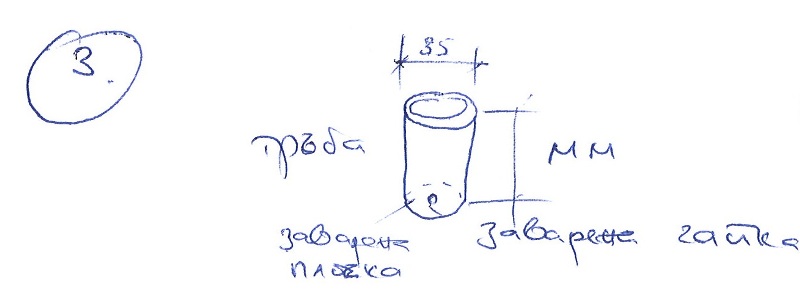 3
35
тръба
мм
заварена
планка
заварена гайка